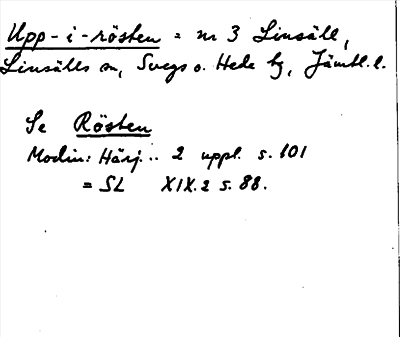 Upp-i-rösten = nr 3 Linsäll,
Linsälls sn, Svegs o. Hede tg, Jämtl. l.
Se Rösten
Modin: Härj... 2 uppl. s. 101
= SL XIX.2 s. 88.